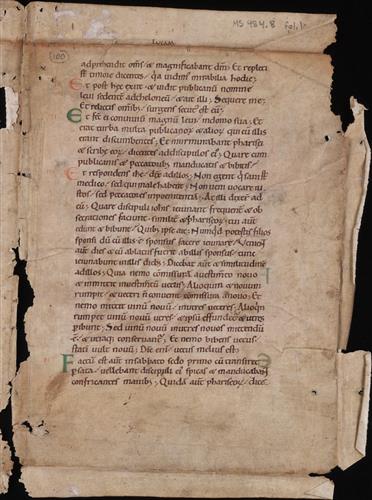 MS 484.8 fol. 1r
LUCAM
(100)
adprehendit om̅s & magnificabant dm̅; Et repleti
st̅ timore dicentes / q̅a uidim̅ mirabilia hodie;
Et post hęc exiit & uidit publicanu̅ nomine
leui sedente̅ ad theloneu̅ & ait illi; Sequere me;
Et relictis omnib; surgens secut̅ est eu̅;
Et fec̅ ei conuiuiu̅ magnu̅ leui / in domo sua; Et
erat turba multa publicanor̅ & alior̅ qui cu̅ illis
erant discumbentes; Et murmurabant pharisei
& scribę eor̅ / dicentes ad discipulos ei̅; Quare cum
publicanis & peccatorib; manducatis & bibitis;
Et respondens ih̅c dix̅ ad illos; Non egent q̅ sani st̅
medico / sed qui male habent; Non ueni uocare iu
stos / sed peccatores in penitentia̅; At illi dixer̅ ad
eu̅; Quare discipuli iohis ieiunant frequent̅ & ob
secrationes faciunt / similit̅ & phariseor̅ / tui aut̅
edunt & bibunt; Quib; ipse ait; Nu̅quid potestis filios
sponsi du̅ cu̅ illis e̅ sponsus facere ieiunare; Uenient
aut̅ dies & cu̅ ablatus fuerit ab illis sponsus / tunc
ieiunabunt in illis dieb; Dicebat aut̅ & similitudine̅
ad illos; Quia nemo co̅missura̅ a uestim̅to nouo
& inmittit in uestim̅tu̅ uetus; Alioquin & nouum
rumpit / & ueteri n̅ conuenit co̅missura a nouo; Et
nemo mittit uinu̅ nouu̅ / in utres ueteres; Alioq̅n
rumpet uinu̅ nouu̅ utres / & ipsu̅ effundet̅ & utres
p̅ibunt; Sed uinu̅ nouu̅ in utres nouos mittendu̅
e̅ / & utraq; conseruant̅; Et nemo bibens uetus /
stati̅ uult nouu̅; Dic̅ eni̅ / uetus melius est;
Factu̅ est aut̅ in sabbato sedo primo cu̅ transiret
p̅ sata / uellebant discipuli ei̅ spicas & manducabant
confricantes manib; Quida̅ aut̅ phariseor̅ / dice